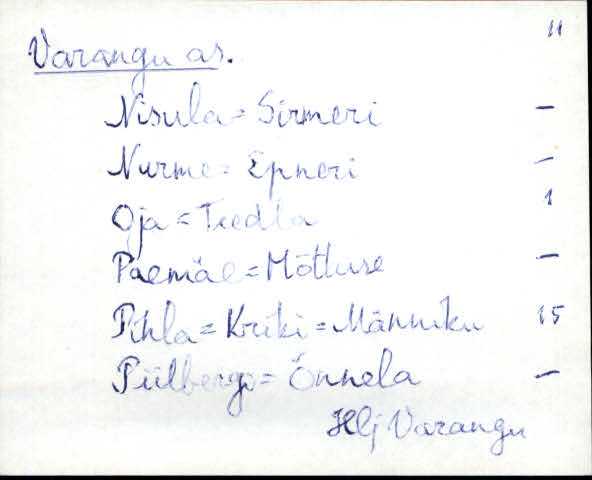 Varangu as. 11
Nisula = Sirmeri —
Nurme = Epneri —
Oja = Teedla 1
Paemäe = Mõtluse —
Pihla = Kriki = Männiku 15
Piilbergi = Õnnela —
Hlj Varangu